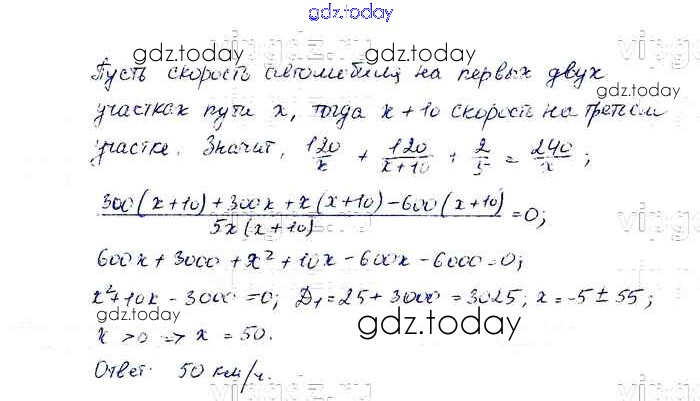 gdz.today
Пусть скорость автомобиля на первых двух
gdz.today
gdz.today
участках пути x, тогда x+10 скорость на третьем
участке. Значит, 120/x + 120/(x+10) + 2/5 = 240/x;
(300(x+10)+300x+x(x+10)-600(x+10))/(5x(x+10)) = 0;
600x+3000+x²+10x-600x-6000=0;
x²+10x-3000=0; D₁=25+3000=3025; x=-5±55;
x>0 => x=50.
gdz.today
Ответ: 50 км/ч.